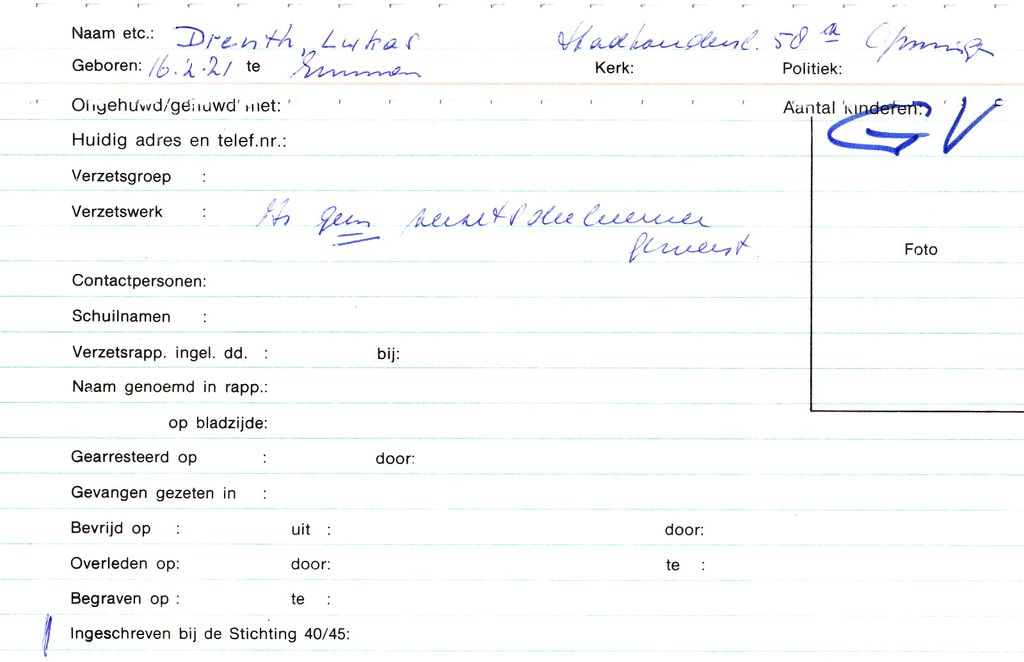 Naam etc.: Drenth, Lukas Stadhoudersl. 58 a Groningen
Geboren: 16.2.21 te Emmen Kerk: Politiek:
Ongehuwd/gehuwd met: Aantal kinderen: GV
Huidig adres en telef.nr.:
Verzetsgroep :
Verzetswerk : Is geen verzetsdeelnemer
geweest.
Foto
Contactpersonen:
Schuilnamen :
Verzetsrapp. ingel. dd. : bij:
Naam genoemd in rapp.:
op bladzijde:
Gearresteerd op : door:
Gevangen gezeten in :
Bevrijd op : uit : door:
Overleden op: door: te :
Begraven op : te :
Ingeschreven bij de Stichting 40/45: